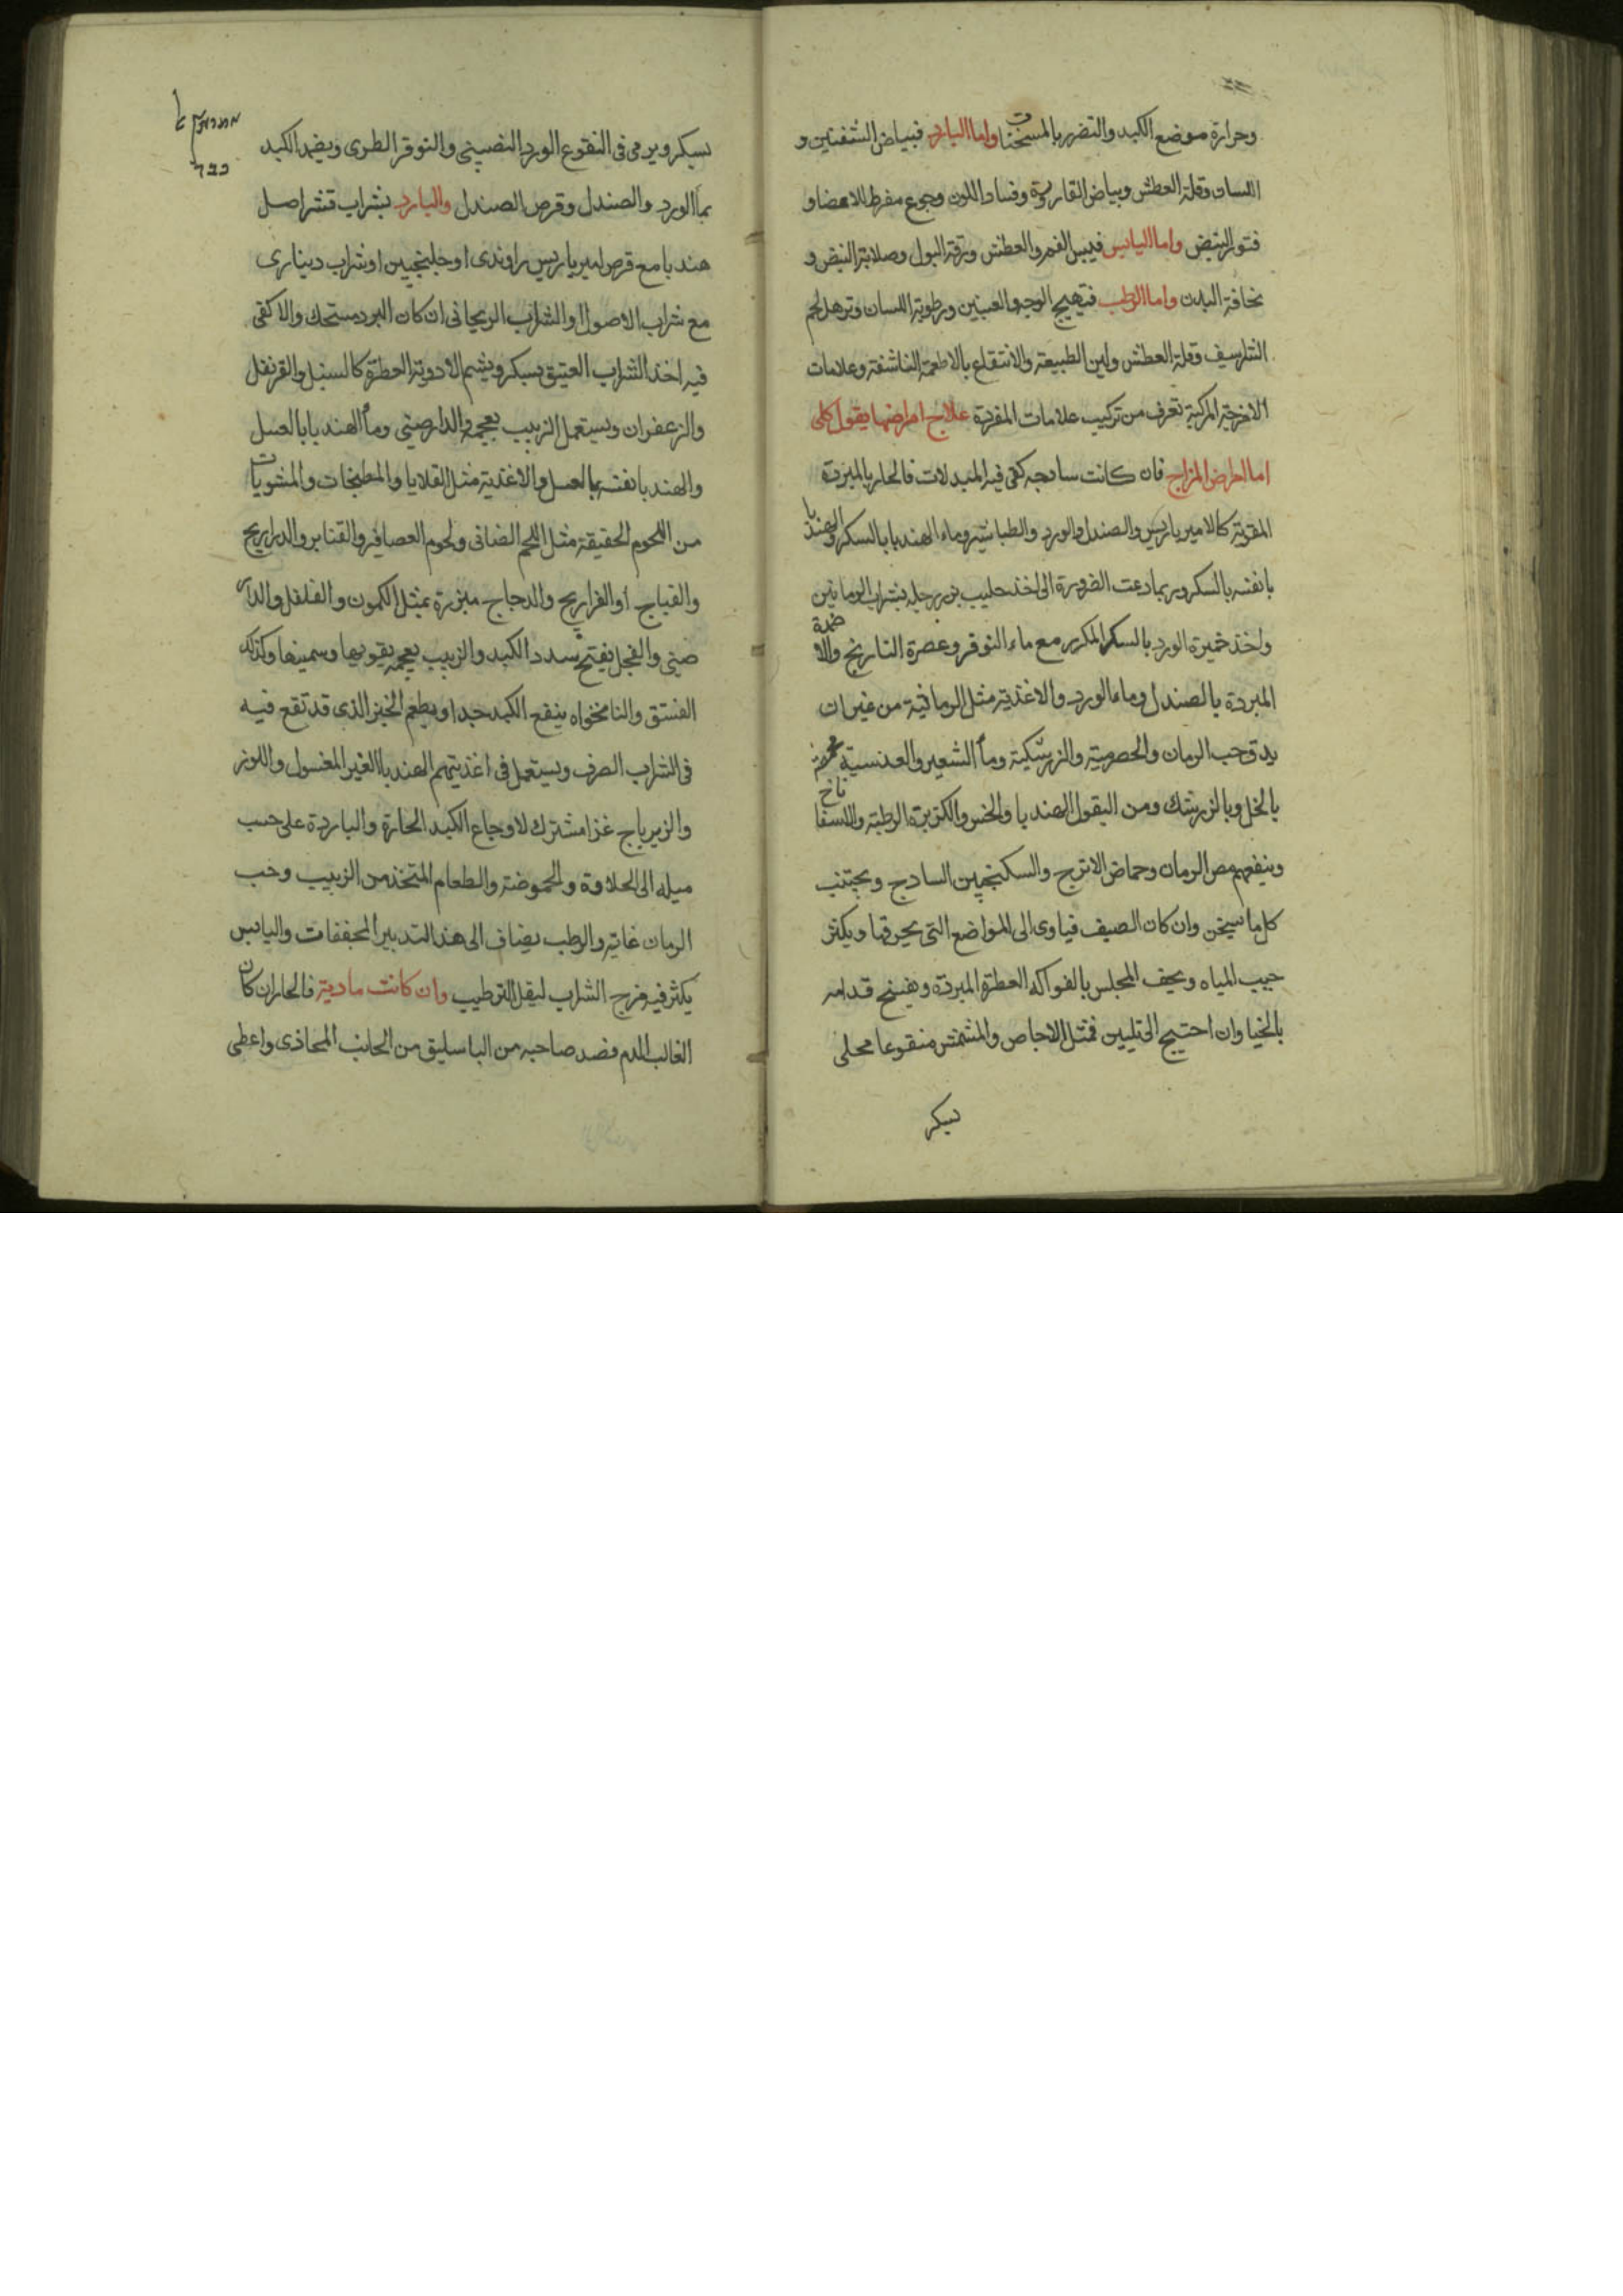 وحرارة موضع الكبد والتضرر بالمسخنات واما البارد فبياض الشفتين و
اللسان وقلة العطش وبياض القارورة وفساد اللون وجوع مفرط للاعضا و
فتور النبض واما اليابس فيبس الفم والعطش ورقة البول وصلابة النبض و
نحافة البدن واما الرطب فتهيج الوجه والعينين ورطوبة اللسان وترهل لحم
الشراسيف وقلة العطش ولين الطبيعة والانتفاع بالاطعمة الناشفة وعلامات
الامزجة المركبة تعرف من تركيب علامات المفردة علاج امراضها بقول كلى
اما امراض المزاج فان كانت ساذجه كفى فيه المبدلات فالحار بالمبردة
المقوية كالاميرباريس والصندل والورد والطباشير وماء الهندبا بالسكر والهندبا
بانفسه بالسكر وربما دعت الضرورة الى اخذ حليب بزر رجله بشراب الرمانين
واخذ خميرة الورد بالسكر المكرر مع ماء النوفر وعصرة النارنج والاضمدة
المبردة بالصندل وماء الورد والاغذية مثل الرمانية من غير ان
يدق حب الرمان والحصرمية والزرشكية وماء الشعير والعدسية
بالخل وبالزرشك ومن البقول الهندبا والخس والكزبرة الرطبة والاسفاناخ
وينفعهم مص الرمان وحماض الاترج والسكنجبين الساذج ويجتنب
كل ما يسخن وان كان الصيف فياوى الى المواضع التى يخرقها ويكثر
حبب المياه ويحف المجلس بالفواكه العطرة المبردة ويفسخ قدامه
بالخيار وان احتيج الى تليين فمثل الاجاص والمشمش منقوعا محلى
بسكر
بسكر ويرمى فى النقوع الورد النصيبى والنوفر الطرى ويضمد الكبد
بماء الورد والصندل وقرص الصندل والبارد بشراب قشر اصل
هندبا مع قرص اميرباريس راوندى او جلنجبين او شراب دينارى
مع شراب الاصول او الشراب الريحانى ان كان البرد مستحك والا كفى
فيه اخذ الشراب العتيق بسكر ويشم الادوية العطرة كالسنبل والقرنفل
والزعفران ويستعمل الزبيب بعجمه والدارصينى وماء الهندبا بالعسل
والهندبا نفسه بالعسل والاغذية مثل القلايا والمطبخات والمشويات
من اللحوم الخفيفة مثل اللحم الضانى ولحوم العصافير والقنابر والدراريج
والقباج او الفراريج والدجاج مبزرة بمثل الكمون والفلفل والدار
صينى والفجل يفتح سدد الكبد والزبيب بعجمه يقويها ويسمنها وكذلك
الفستق والنانخواه ينفع الكبد جدا ويطعم الخبز الذى قد تقع فيه
فى الشراب الصرف ويستعمل فى اغذيتهم الهندبا الغير المغسول واللوز
والزيرباج غذا مشترك لاوجاع الكبد الحارة والباردة على حسب
ميله الى الحلاوة والحموضة والطعام المتخذ من الزبيب وحب
الرمان غاية والرطب يضاف الى هذا التدبير المجففات واليابس
يكثر فيه مزج الشراب ليقل الترطيب وان كانت مادية فالحار ان كان
الغالب الدم فصد صاحبه من الباسليق من الجانب المحاذى واعطى